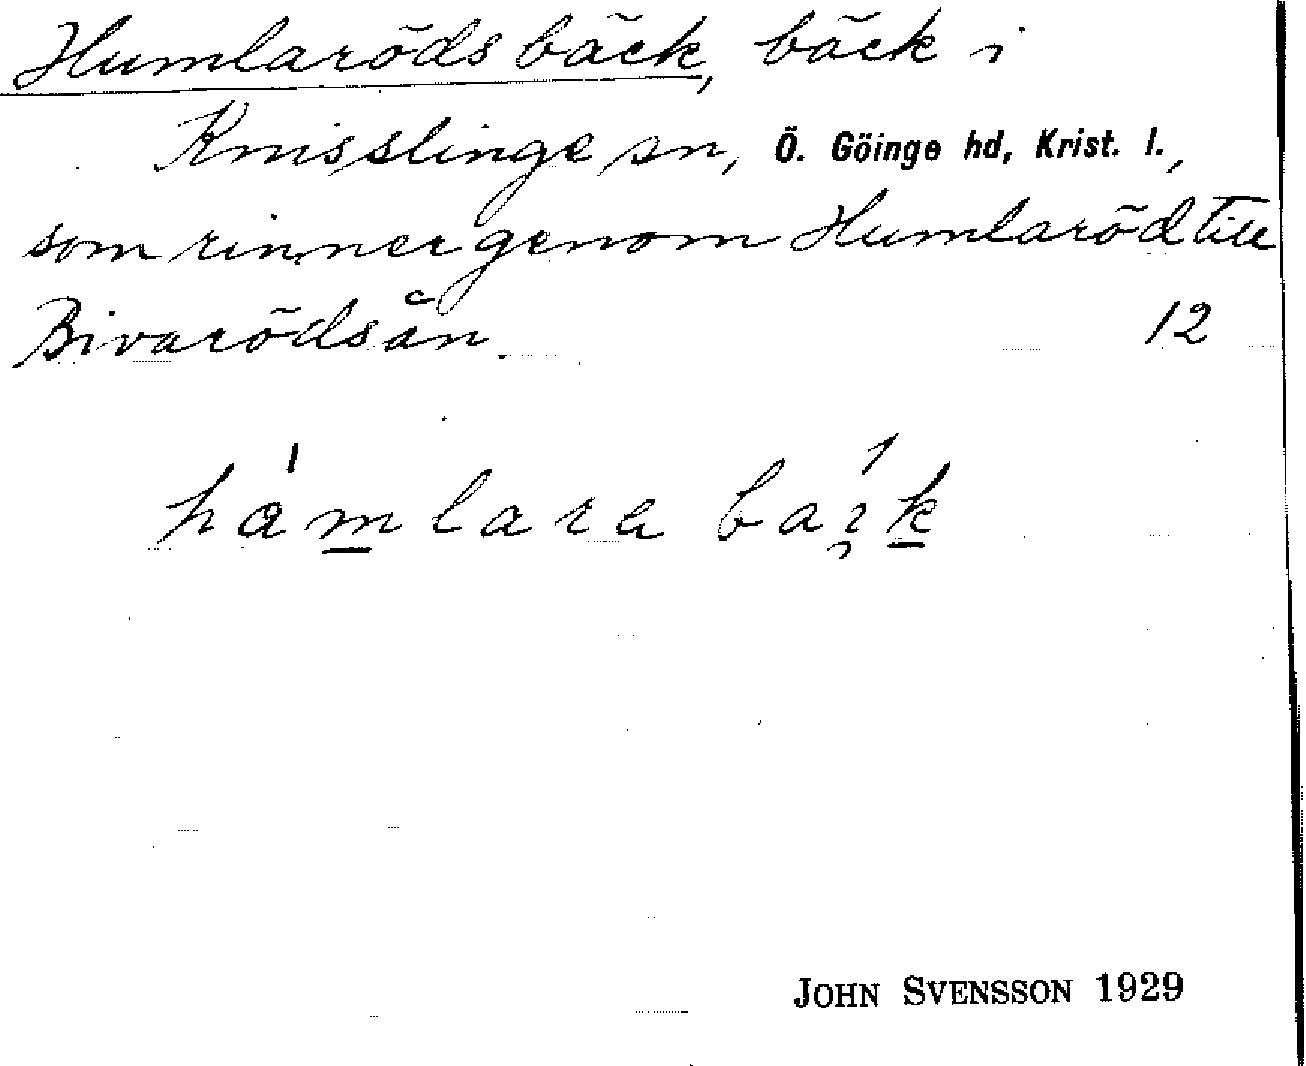 Humlaröds bäck, bäck i
Knisslinge sn, Ö. Göinge hd, Krist. l.,
som rinner genom Humlaröd till
Bivarödsån. 12
JOHN SVENSSON 1929